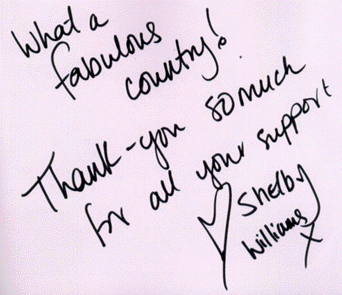 What a
fabulous
country!
Thank-you so much
for all your support
Shelby
Williams x